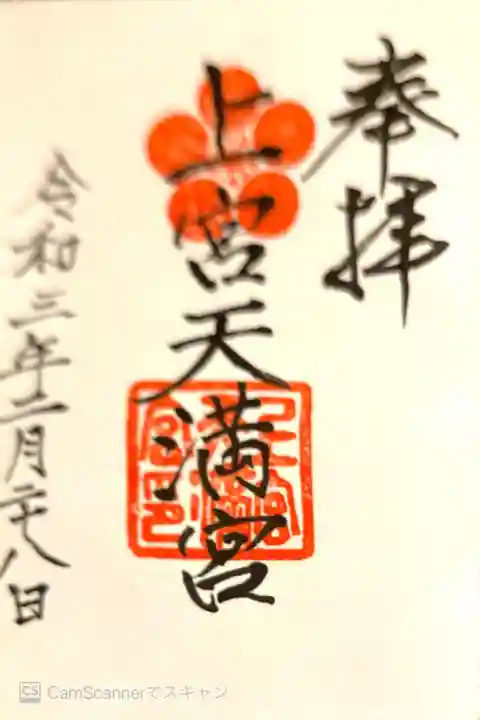 奉拝
上宮天満宮
令和三年二月二十八日
CS CamScannerでスキャン